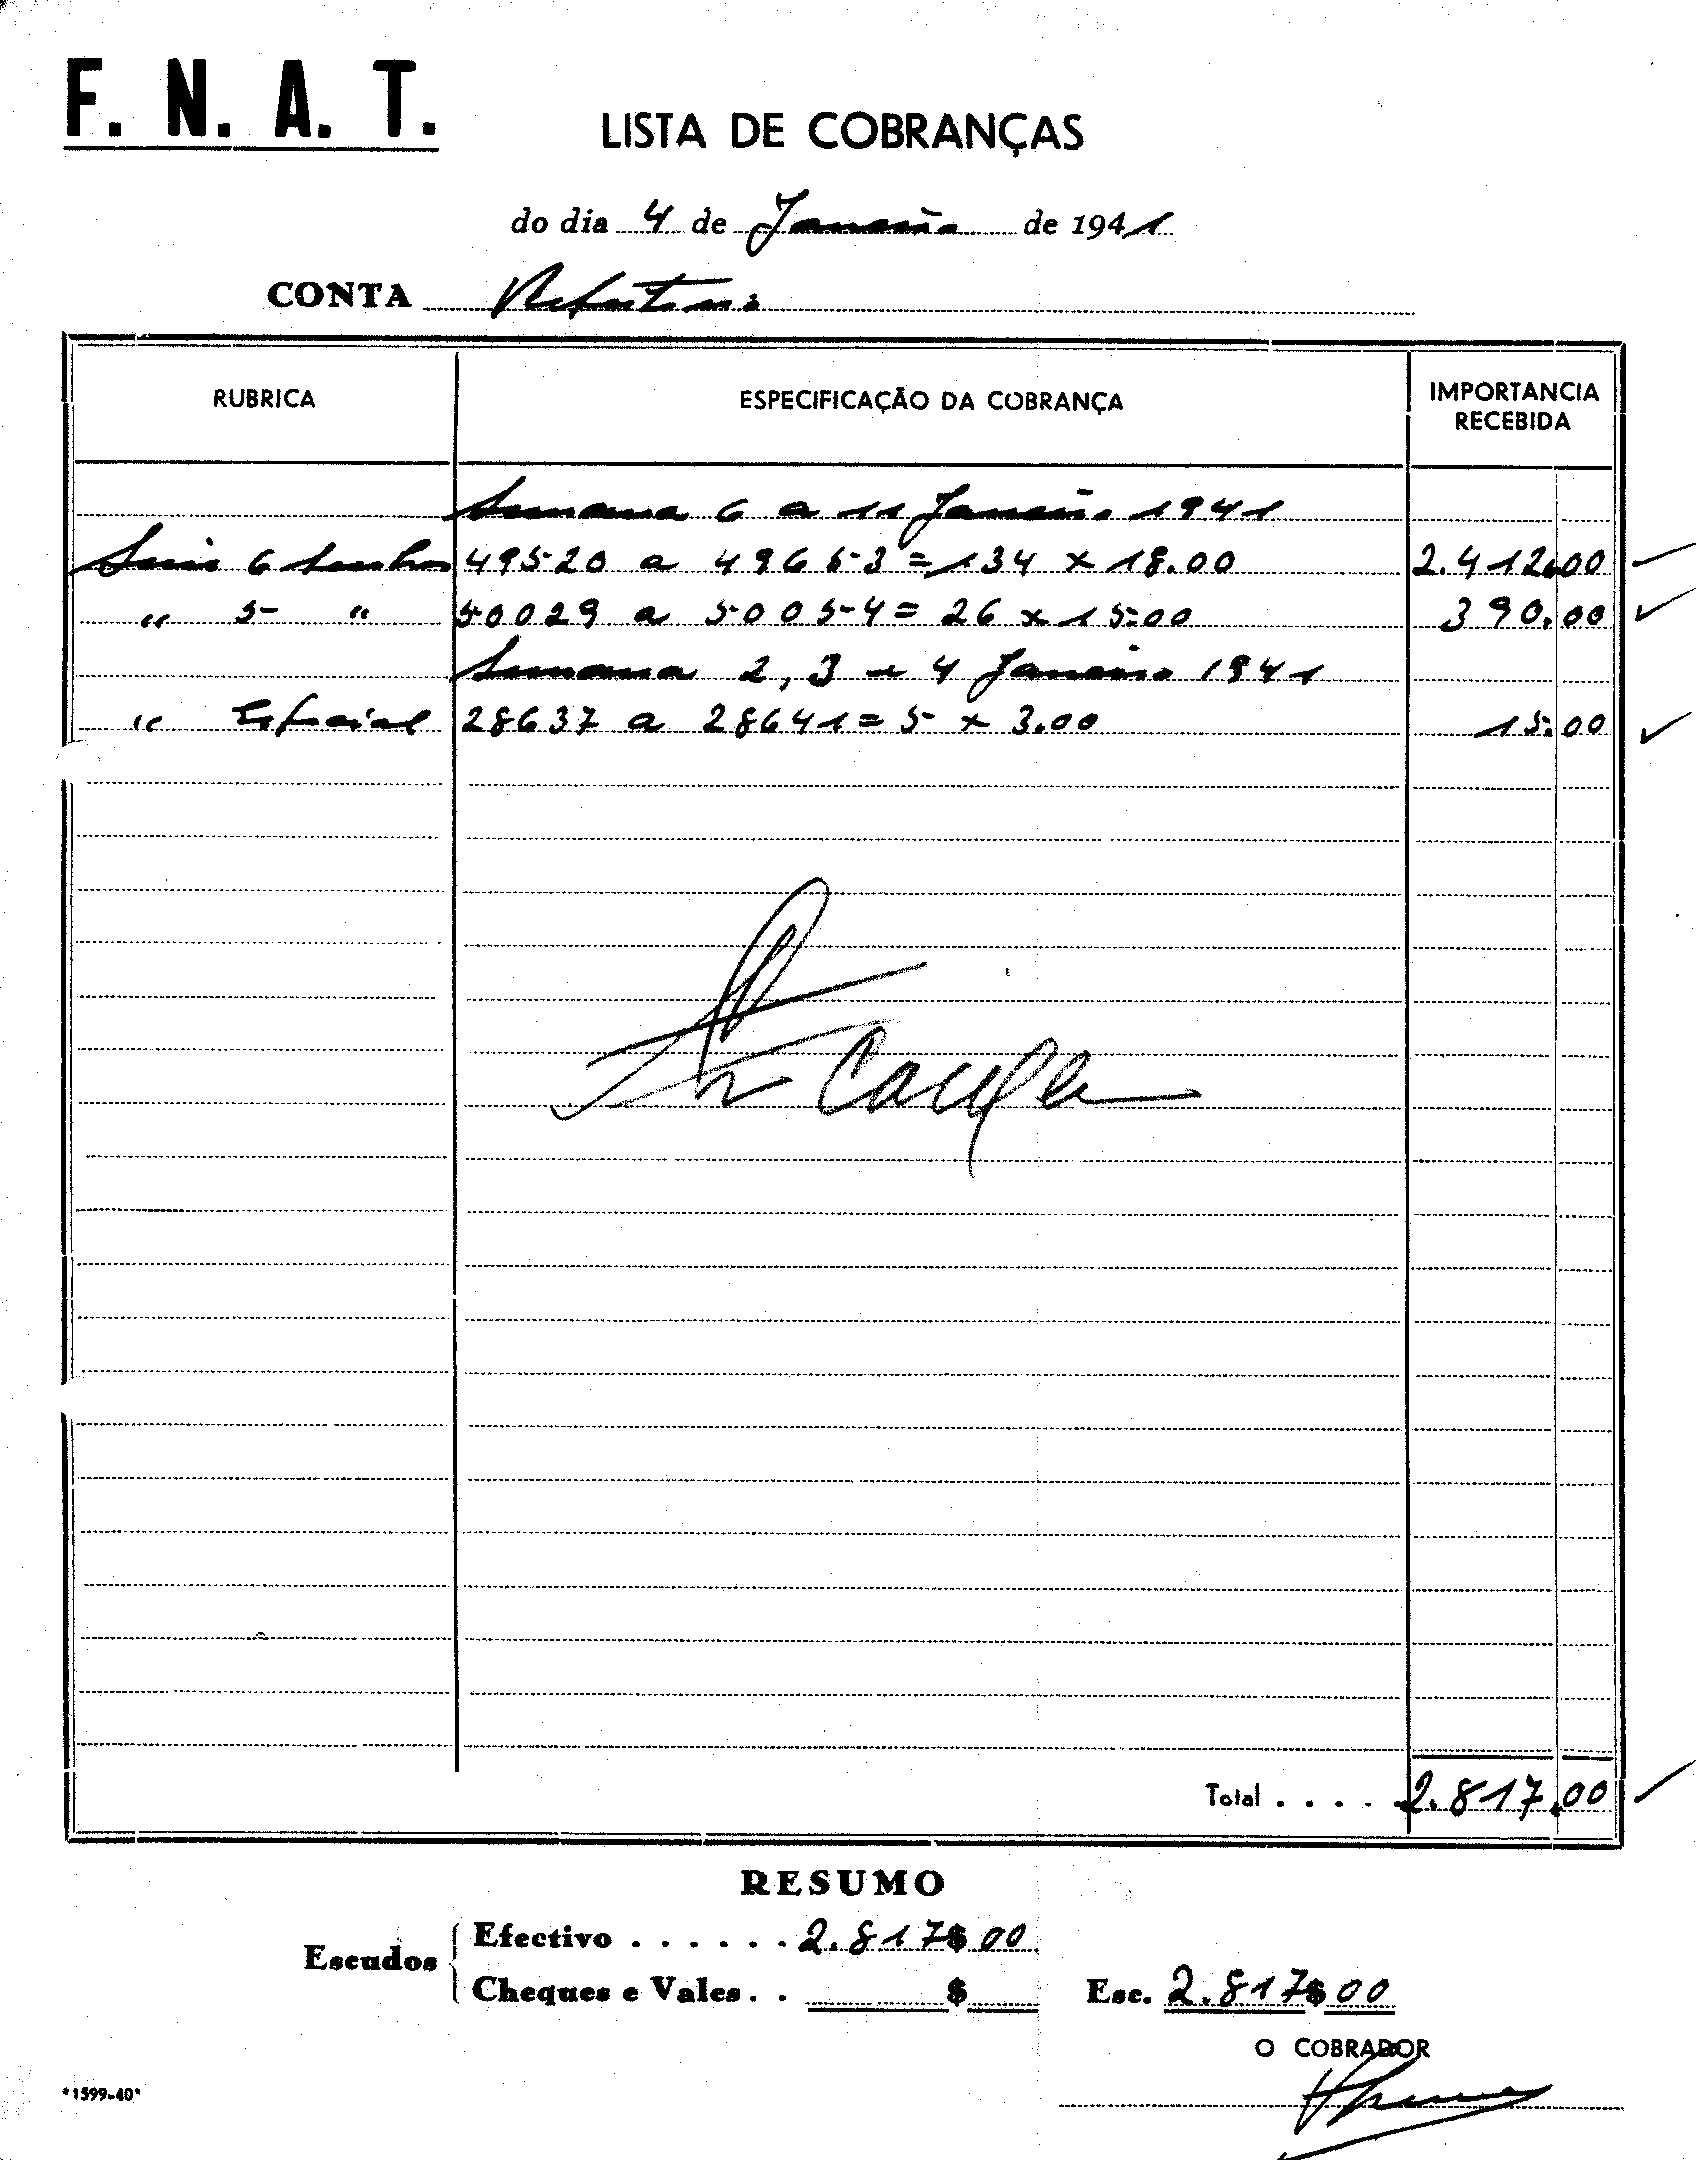 F. N. A. T.
LISTA DE COBRANÇAS
do dia 4 de Janeiro de 1941
CONTA Refeitorio
RUBRICA ESPECIFICAÇÃO DA COBRANÇA IMPORTANCIA RECEBIDA
Semana 6 a 11 Janeiro 1941
6 Senhas 49520 a 49653 = 134 x 18.00 2.412.00
" 5 " 50029 a 50054 = 26 x 15.00 390.00
Semana 2, 3 e 4 Janeiro 1941
" Especial 28637 a 28641 = 5 x 3.00 15.00
Total . . . . 2.817.00
RESUMO
Escudos
Efectivo . . . . . . 2.817$00
Cheques e Vales . . $
Esc. 2.817$00
O COBRADOR
*1599-40*